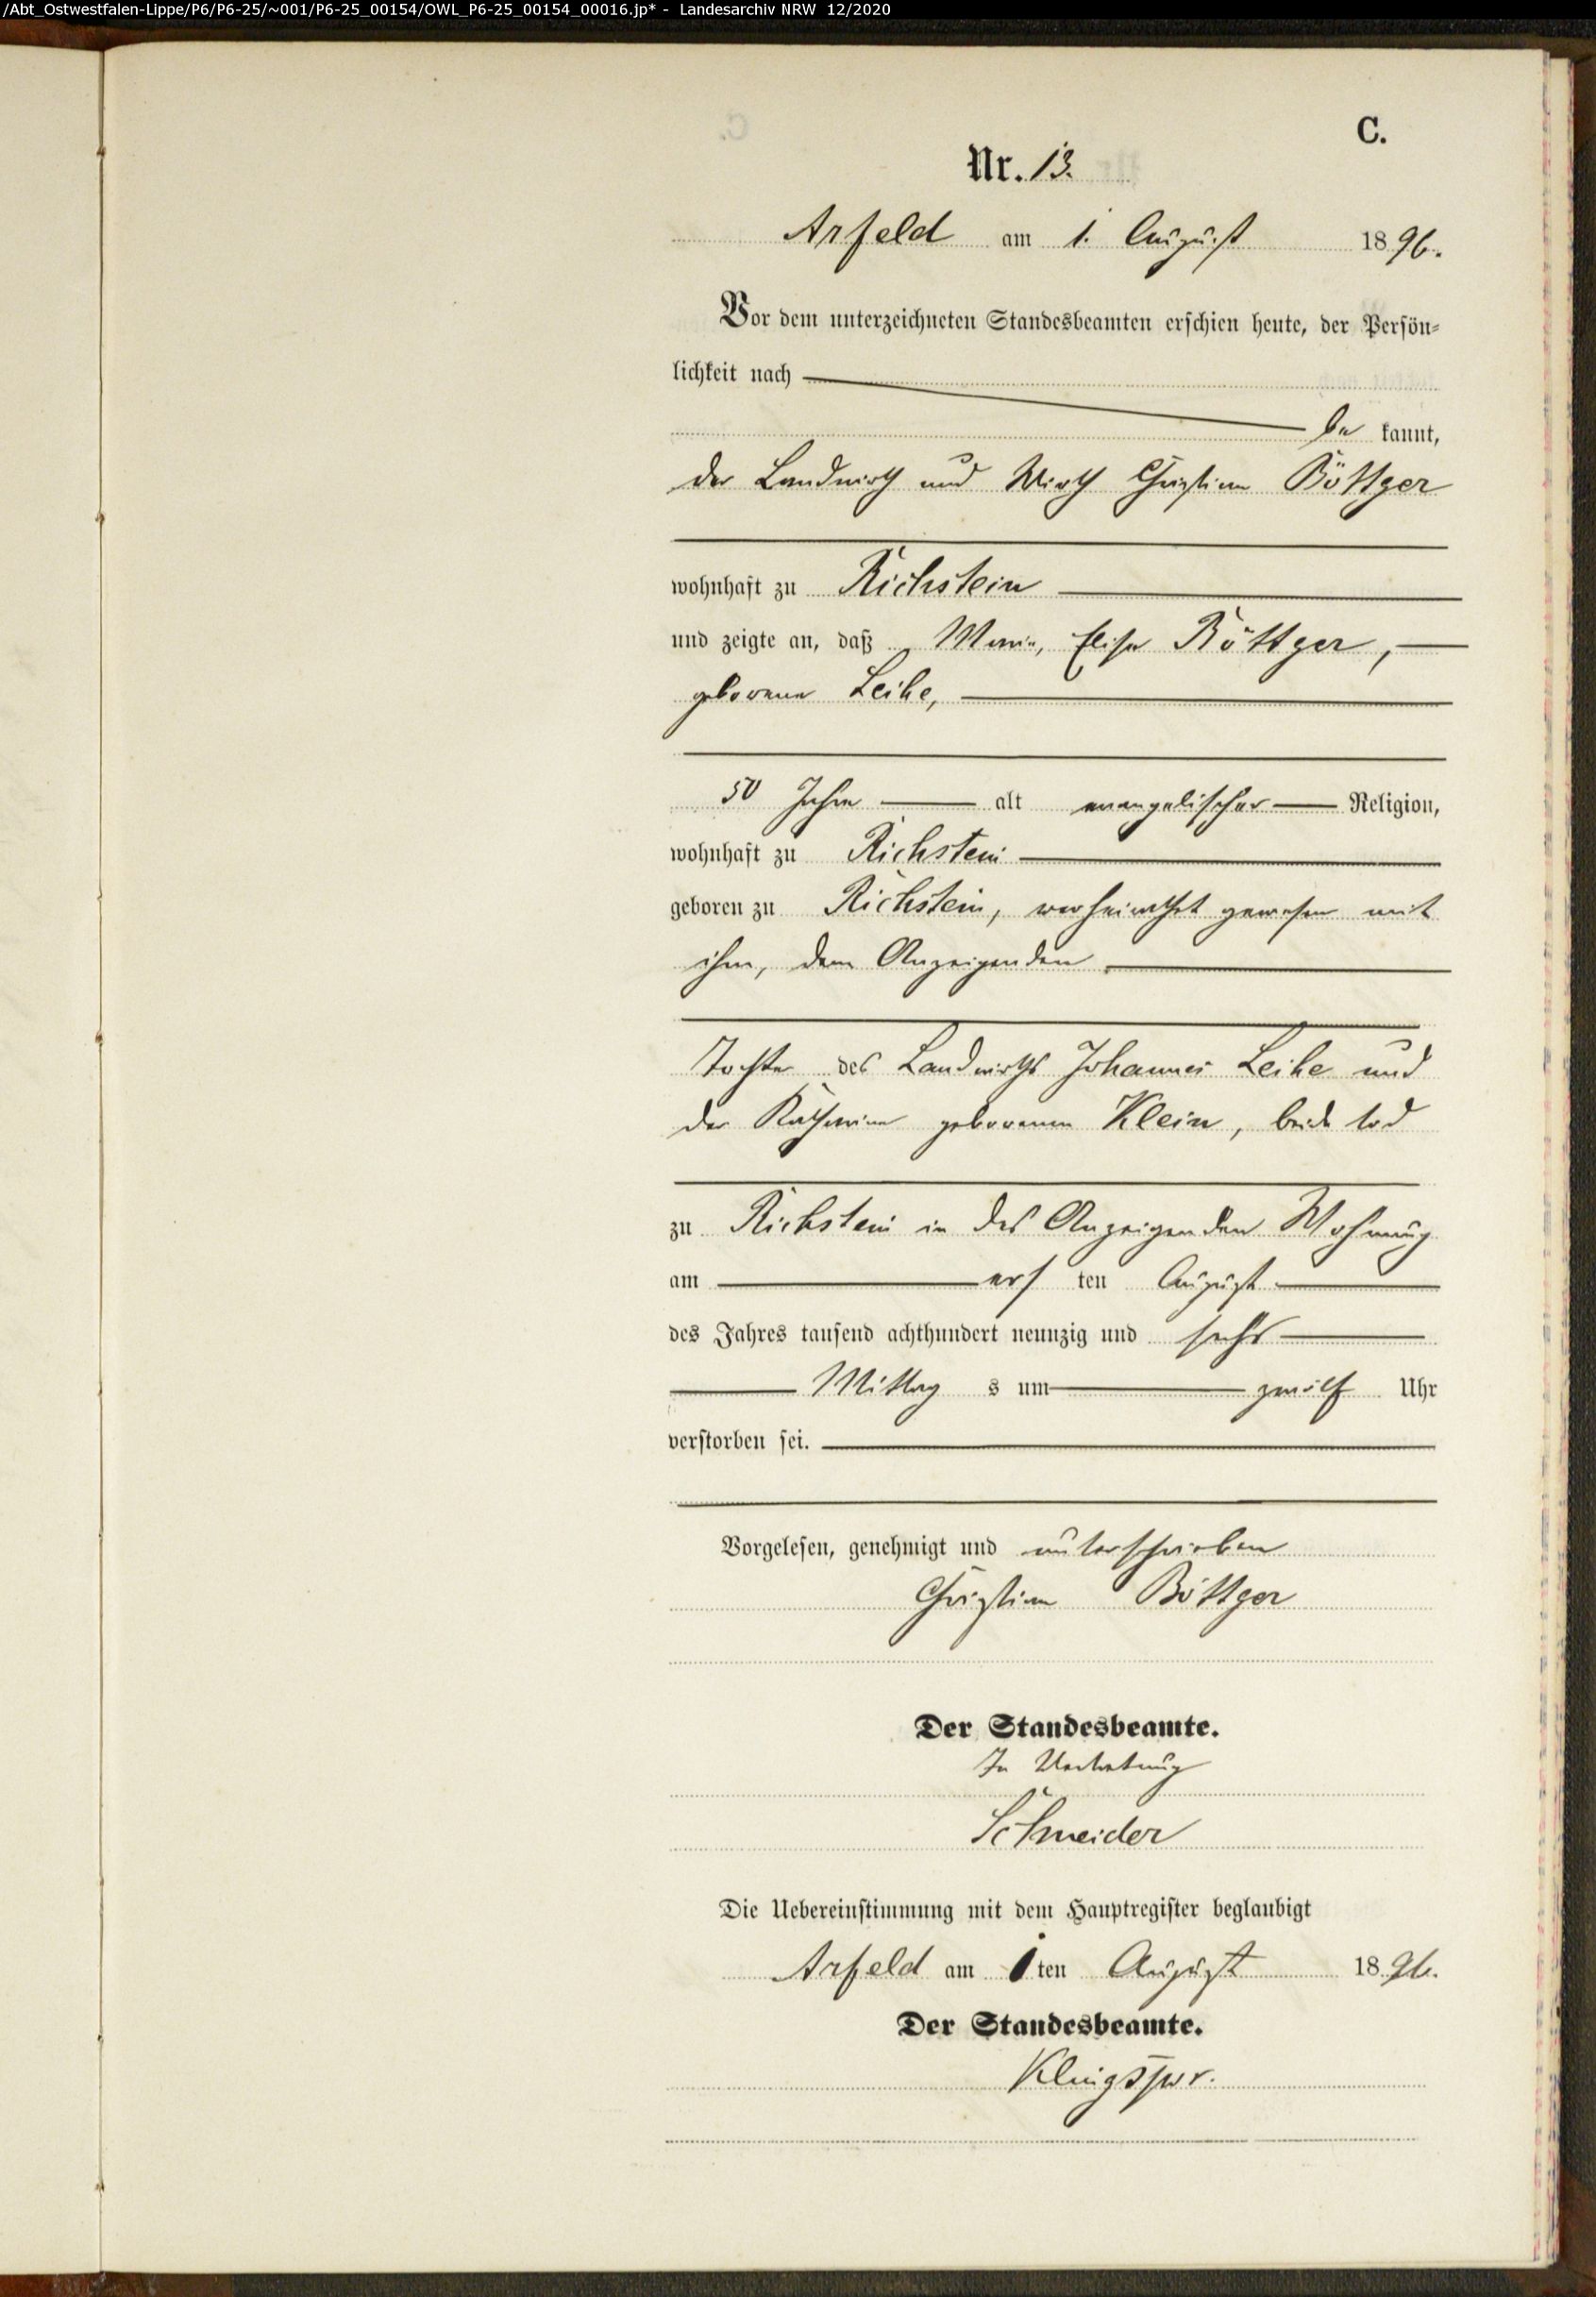 /Abt_Ostwestfalen-Lippe/P6/P6-25/~001/P6-25_00154/OWL_P6-25_00154_00016.jp* - Landesarchiv NRW 12/2020
C.
Nr. 13.
Arfeld am 1. August 1896.
Vor dem unterzeichneten Standesbeamten erschien heute, der Persön-
lichkeit nach
be kannt,
der Landwirth und Wirth Christian Böttger
wohnhaft zu Richstein
und zeigte an, daß Marie, Elise Böttger,
geborene Leihe,
50 Jahre alt evangelischer Religion,
wohnhaft zu Richstein
geboren zu Richstein, verheirathet gewesen mit
ihm, dem Anzeigenden
Tochter des Landwirths Johannes Leihe und
der Katharine geborenen Klein, beide tod
zu Richstein in des Anzeigenden Wohnung
am ers ten August
des Jahres tausend achthundert neunzig und sechs
Mittag s um zwölf Uhr
verstorben sei.
Vorgelesen, genehmigt und unterschrieben
Christian Böttger
Der Standesbeamte.
In Vertretung
Schneider
Die Uebereinstimmung mit dem Hauptregister beglaubigt
Arfeld am 1ten August 1896.
Der Standesbeamte.
Klingspor.